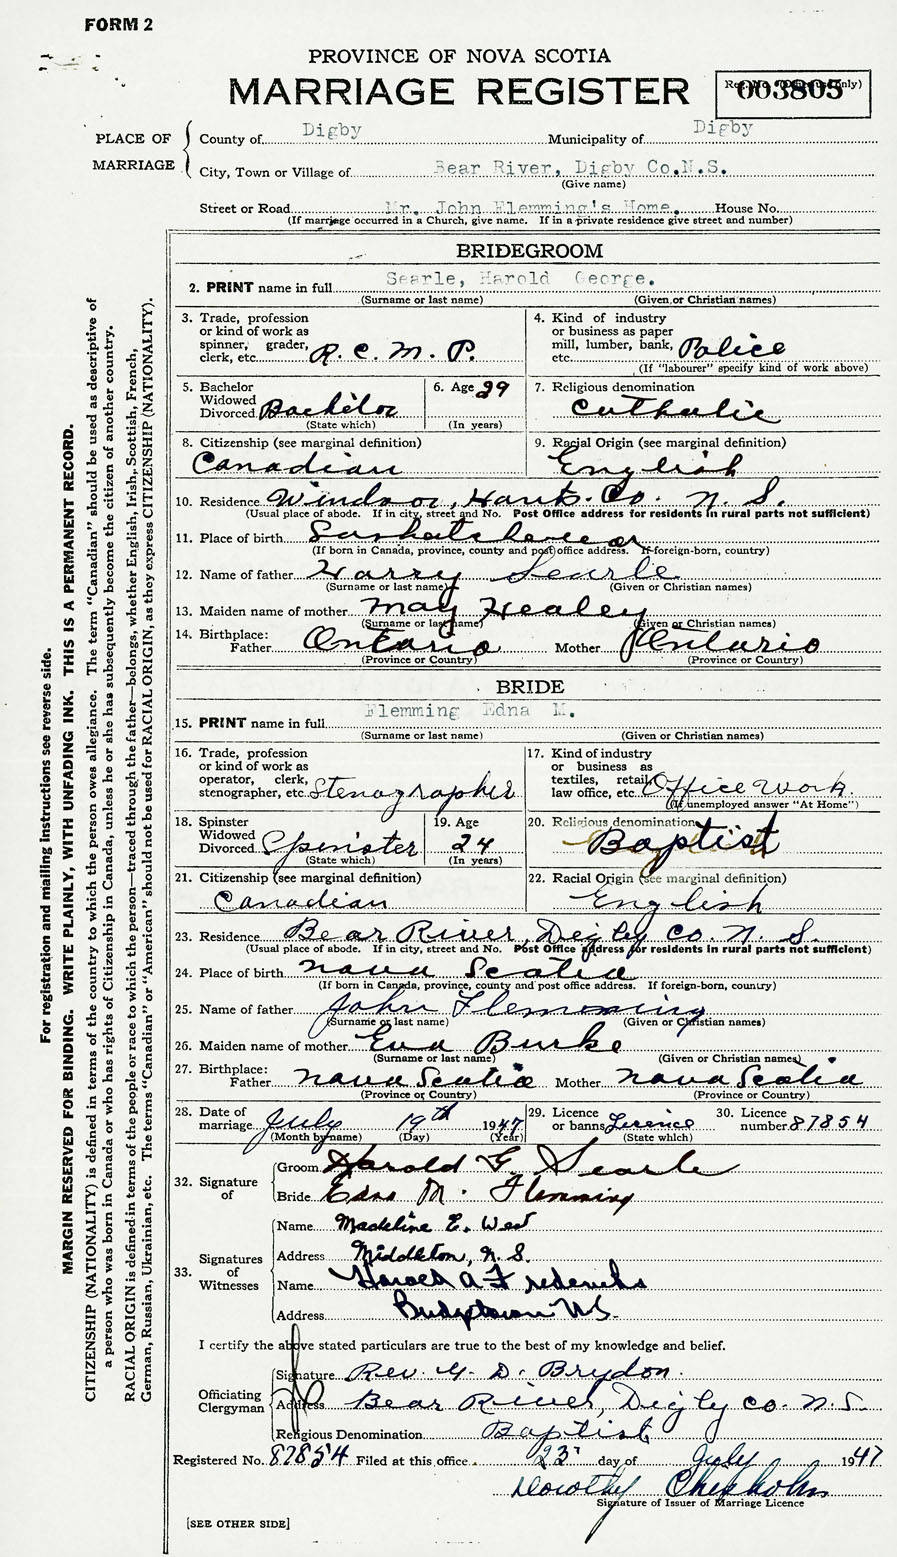 FORM 2
PROVINCE OF NOVA SCOTIA
MARRIAGE REGISTER
003805
PLACE OF MARRIAGE
County of Digby Municipality of Digby
City, Town or Village of Bear River, Digby Co.N.S.
(Give name)
Street or Road Mr. John Flemming's Home. House No.
(If marriage occurred in a Church, give name. If in a private residence give street and number)
BRIDEGROOM
2. PRINT name in full Searle, Harold George.
(Surname or last name) (Given or Christian names)
3. Trade, profession or kind of work as spinner, grader, clerk, etc. R. C. M. P.
4. Kind of industry or business as paper mill, lumber, bank, etc. Police
(If "labourer" specify kind of work above)
5. Bachelor Widowed Divorced Bachelor
(State which)
6. Age 29
(In years)
7. Religious denomination
Catholic
8. Citizenship (see marginal definition)
Canadian
9. Racial Origin (see marginal definition)
English
10. Residence Windsor, Hants. Co. N. S.
(Usual place of abode. If in city, street and No. Post Office address for residents in rural parts not sufficient)
11. Place of birth Saskatchewan
(If born in Canada, province, county and post office address. If foreign-born, country)
12. Name of father Harry Searle
(Surname or last name) (Given or Christian names)
13. Maiden name of mother May Healey
(Surname or last name) (Given or Christian names)
14. Birthplace: Father Ontario Mother Ontario
(Province or Country) (Province or Country)
BRIDE
15. PRINT name in full Flemming Edna M.
(Surname or last name) (Given or Christian names)
16. Trade, profession or kind of work as operator, clerk, stenographer, etc. Stenographer
17. Kind of industry or business as textiles, retail, law office, etc. Office Work
(If unemployed answer "At Home")
18. Spinster Widowed Divorced Spinster
(State which)
19. Age 24
(In years)
20. Religious denomination
Baptist
21. Citizenship (see marginal definition)
Canadian
22. Racial Origin (see marginal definition)
English
23. Residence Bear River, Digby Co. N. S.
(Usual place of abode. If in city, street and No. Post Office address for residents in rural parts not sufficient)
24. Place of birth Nova Scotia
(If born in Canada, province, county and post office address. If foreign-born, country)
25. Name of father John Flemming
(Surname or last name) (Given or Christian names)
26. Maiden name of mother Eva Burke
(Surname or last name) (Given or Christian names)
27. Birthplace: Father Nova Scotia Mother Nova Scotia
(Province or Country) (Province or Country)
28. Date of marriage July 19th 1947
(Month by name) (Day) (Year)
29. Licence or banns Licence
(State which)
30. Licence number 87854
32. Signature of
Groom Harold G. Searle
Bride Edna M. Flemming
33. Signatures of Witnesses
Name Madeline E. West
Address Middleton, N. S.
Name Harold A Fredericks
Address Bridgetown N.S.
I certify the above stated particulars are true to the best of my knowledge and belief.
Officiating Clergyman
Signature Rev. G. D. Brydon.
Address Bear River, Digby Co. N. S.
Religious Denomination Baptist
Registered No. 87854 Filed at this office 23 day of July 1947
Dorothy Chisholm
Signature of Issuer of Marriage Licence
[SEE OTHER SIDE]
For registration and mailing instructions see reverse side.
MARGIN RESERVED FOR BINDING. WRITE PLAINLY, WITH UNFADING INK. THIS IS A PERMANENT RECORD.
CITIZENSHIP (NATIONALITY) is defined in terms of the country to which the person owes allegiance. The term "Canadian" should be used as descriptive of
a person who was born in Canada or who has rights of Citizenship in Canada, unless he or she has subsequently become the citizen of another country.
RACIAL ORIGIN is defined in terms of the people or race to which the person—traced through the father—belongs, whether English, Irish, Scottish, French,
German, Russian, Ukrainian, etc. The terms "Canadian" or "American" should not be used for RACIAL ORIGIN, as they express CITIZENSHIP (NATIONALITY).